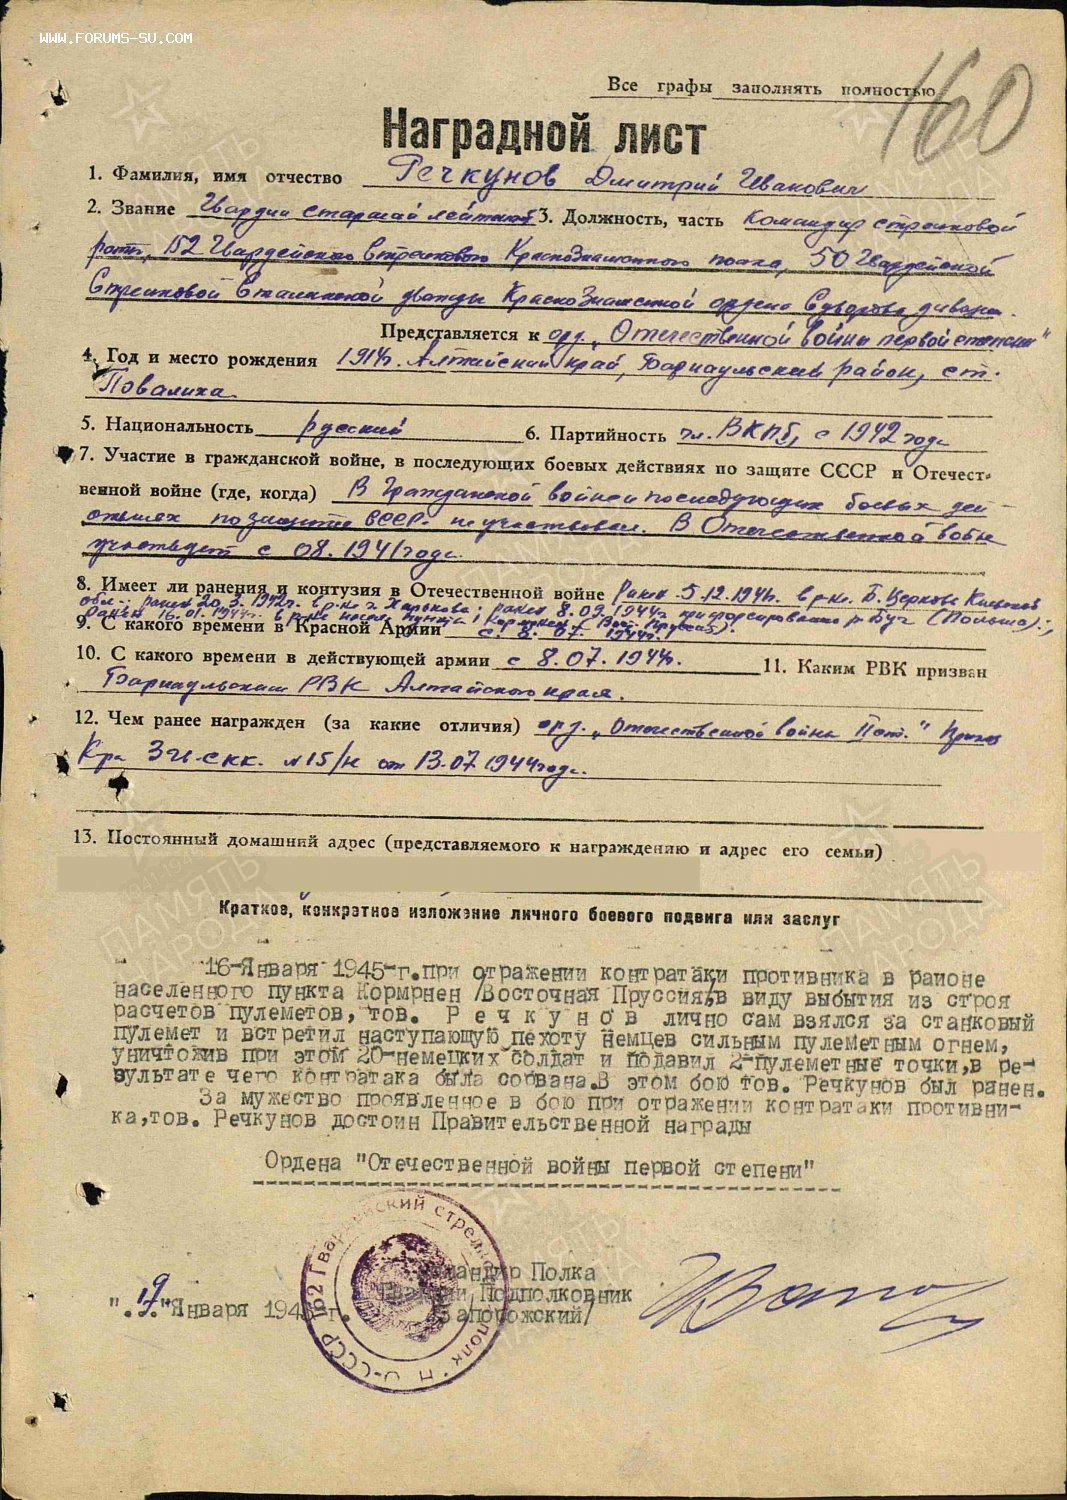 WWW.FORUMS-SU.COM
160
Все графы заполнять полностью
Наградной лист
1. Фамилия, имя отчество Речкунов Дмитрий Иванович
2. Звание Гвардии старший лейтенант 3. Должность, часть Командир стрелковой
роты, 152 Гвардейского Стрелкового Краснознаменного полка, 50 Гвардейской
Стрелковой Сталинской дважды Краснознаменной ордена Суворова дивизи.
Представляется к орд. „Отечественной войны первой степени"
4. Год и место рождения 1914г. Алтайский край, Барнаульский район, ст.
Повалиха.
5. Национальность русский 6. Партийность чл. ВКПБ, с 1942 года
7. Участие в гражданской войне, в последующих боевых действиях по защите СССР и Отечест-
венной войне (где, когда) В Гражданской войне и последующих боевых дей-
ствиях по защите СССР не участвовал. В Отечественной войне
участвует с 08.1941 года.
8. Имеет ли ранения и контузия в Отечественной войне Ранен 5.12.194 в р-не Б. Церковь Киевской
обл.; ранен 20.3.1942г. в р-не г. Харькова; ранен 8.09.1944г при форсировании р. Буг (Польша);
ранен 16.01.194 в р-не насел. пункта Кормрнен (Вост. Пруссия).
9. С какого времени в Красной Армии с 8.07.1944г.
10. С какого времени в действующей армии с 8.07.1944г. 11. Каким РВК призван
Барнаульским РВК Алтайского края.
12. Чем ранее награжден (за какие отличия) орд. „Отечественной война II ст." Приказ
3 гв. скк. №15/н от 13.07.1944 года.
13. Постоянный домашний адрес (представляемого к награждению и адрес его семьи)
Краткое, конкретное изложение личного боевого подвига или заслуг
16-Января 1945-г. при отражении контратаки противника в районе
населенного пункта Кормрнен /Восточная Пруссия/, в виду выбытия из строя
расчетов пулеметов, тов. Р е ч к у н о в лично сам взялся за станковый
пулемет и встретил наступающую пехоту немцев сильным пулеметным огнем,
уничтожив при этом 20-немецких солдат и подавил 2-пулеметные точки, в ре-
зультате чего контратака была сорвана. В этом бою тов. Речкунов был ранен.
За мужество проявленное в бою при отражении контратаки противни-
ка, тов. Речкунов достоин Правительственной награды
Ордена "Отечественной войны первой степени"
Командир Полка
Гвардии Подполковник
/Запорожский/
"19" Января 1945-г.
152 Гвардейский стрелковый полк Н О-СССР
ПАМЯТЬ НАРОДА